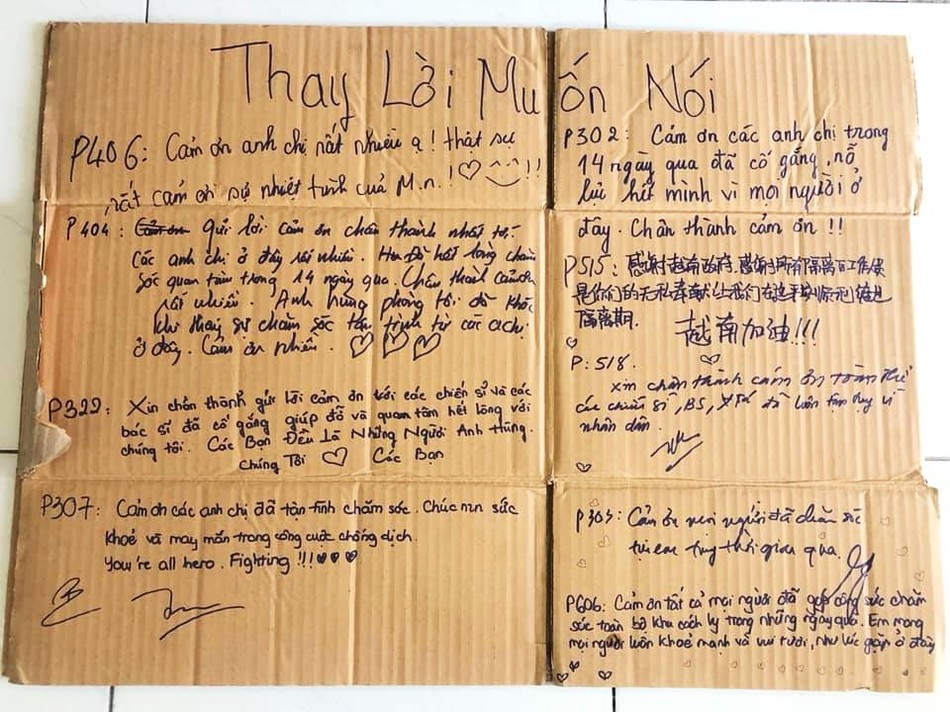 Thay Lời Muốn Nói
P406: Cảm ơn anh chị rất nhiều ạ! thật sự
rất cảm ơn sự nhiệt tình của M.n.!♡^_^!!
P404: gửi lời cảm ơn chân thành nhất tới
Các anh chị ở đây rất nhiều. Họ đã hết lòng chăm
sóc quan tâm trong 14 ngày qua. Chân thành cảm ơn
rất nhiều. Anh hùng phòng tôi đã khóc
khi thấy sự chăm sóc tận tình từ các ac
ở đây. Cảm ơn nhiều. ♡♡♡
P322: Xin chân thành gửi lời cảm ơn tới các chiến sĩ và các
bác sĩ đã cố gắng giúp đỡ và quan tâm hết lòng với
chúng tôi. Các Bạn Đều Là Những Người Anh Hùng.
Chúng Tôi ♡ Các Bạn
P307: Cảm ơn các anh chị đã tận tình chăm sóc. Chúc mn sức
khoẻ và may mắn trong công cuộc chống dịch.
You're all hero. Fighting !!!♥♥♥
P302: Cảm ơn các anh chị trong
14 ngày qua đã cố gắng, nỗ
lực hết mình vì mọi người ở
đây. Chân thành cảm ơn !!
P515: 感谢越南政府.感谢所有隔离区工作人员
是你们的无私奉献让我们在这里顺利度过
隔离期.
越南加油!!!
P: 518.
xin chân thành cám ơn toàn thể
các chiến sĩ, BS, đã luôn tận tụy vì
nhân dân.
P303: Cảm ơn mọi người đã chăm sóc
tụi em trong thời gian qua.
P606: Cảm ơn tất cả mọi người đã góp công sức chăm
sóc toàn bộ khu cách ly trong những ngày qua. Em mong
mọi người luôn khoẻ mạnh và vui tươi, như lúc gặp ở đây